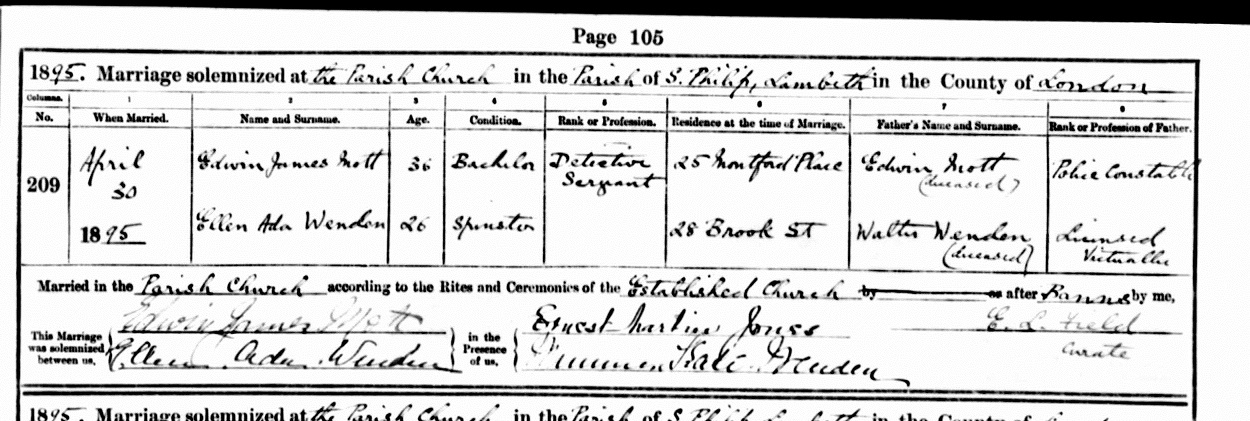 Page 105
1895. Marriage solemnized at the Parish Church in the Parish of S. Philip, Lambeth in the County of London
Columns. 1 2 3 4 5 6 7 8
No. When Married. Name and Surname. Age. Condition. Rank or Profession. Residence at the time of Marriage. Father's Name and Surname. Rank or Profession of Father.
209 April 30 Edwin James Mott 36 Bachelor Detective Sergeant 25 Montford Place Edwin Mott (deceased) Police Constable
1895 Ellen Ada Wenden 26 Spinster 28 Brook St Walter Wenden (deceased) Licensed Victualler
Married in the Parish Church according to the Rites and Ceremonies of the Established Church by or after Banns by me,
This Marriage was solemnized between us, Edwin James Mott in the Presence of us, Ernest Martin Jones E. L. Field
Ellen Ada Wenden Wenden Curate
1895. Marriage solemnized at the Parish Church in the Parish of S. Philip Lambeth in the County of